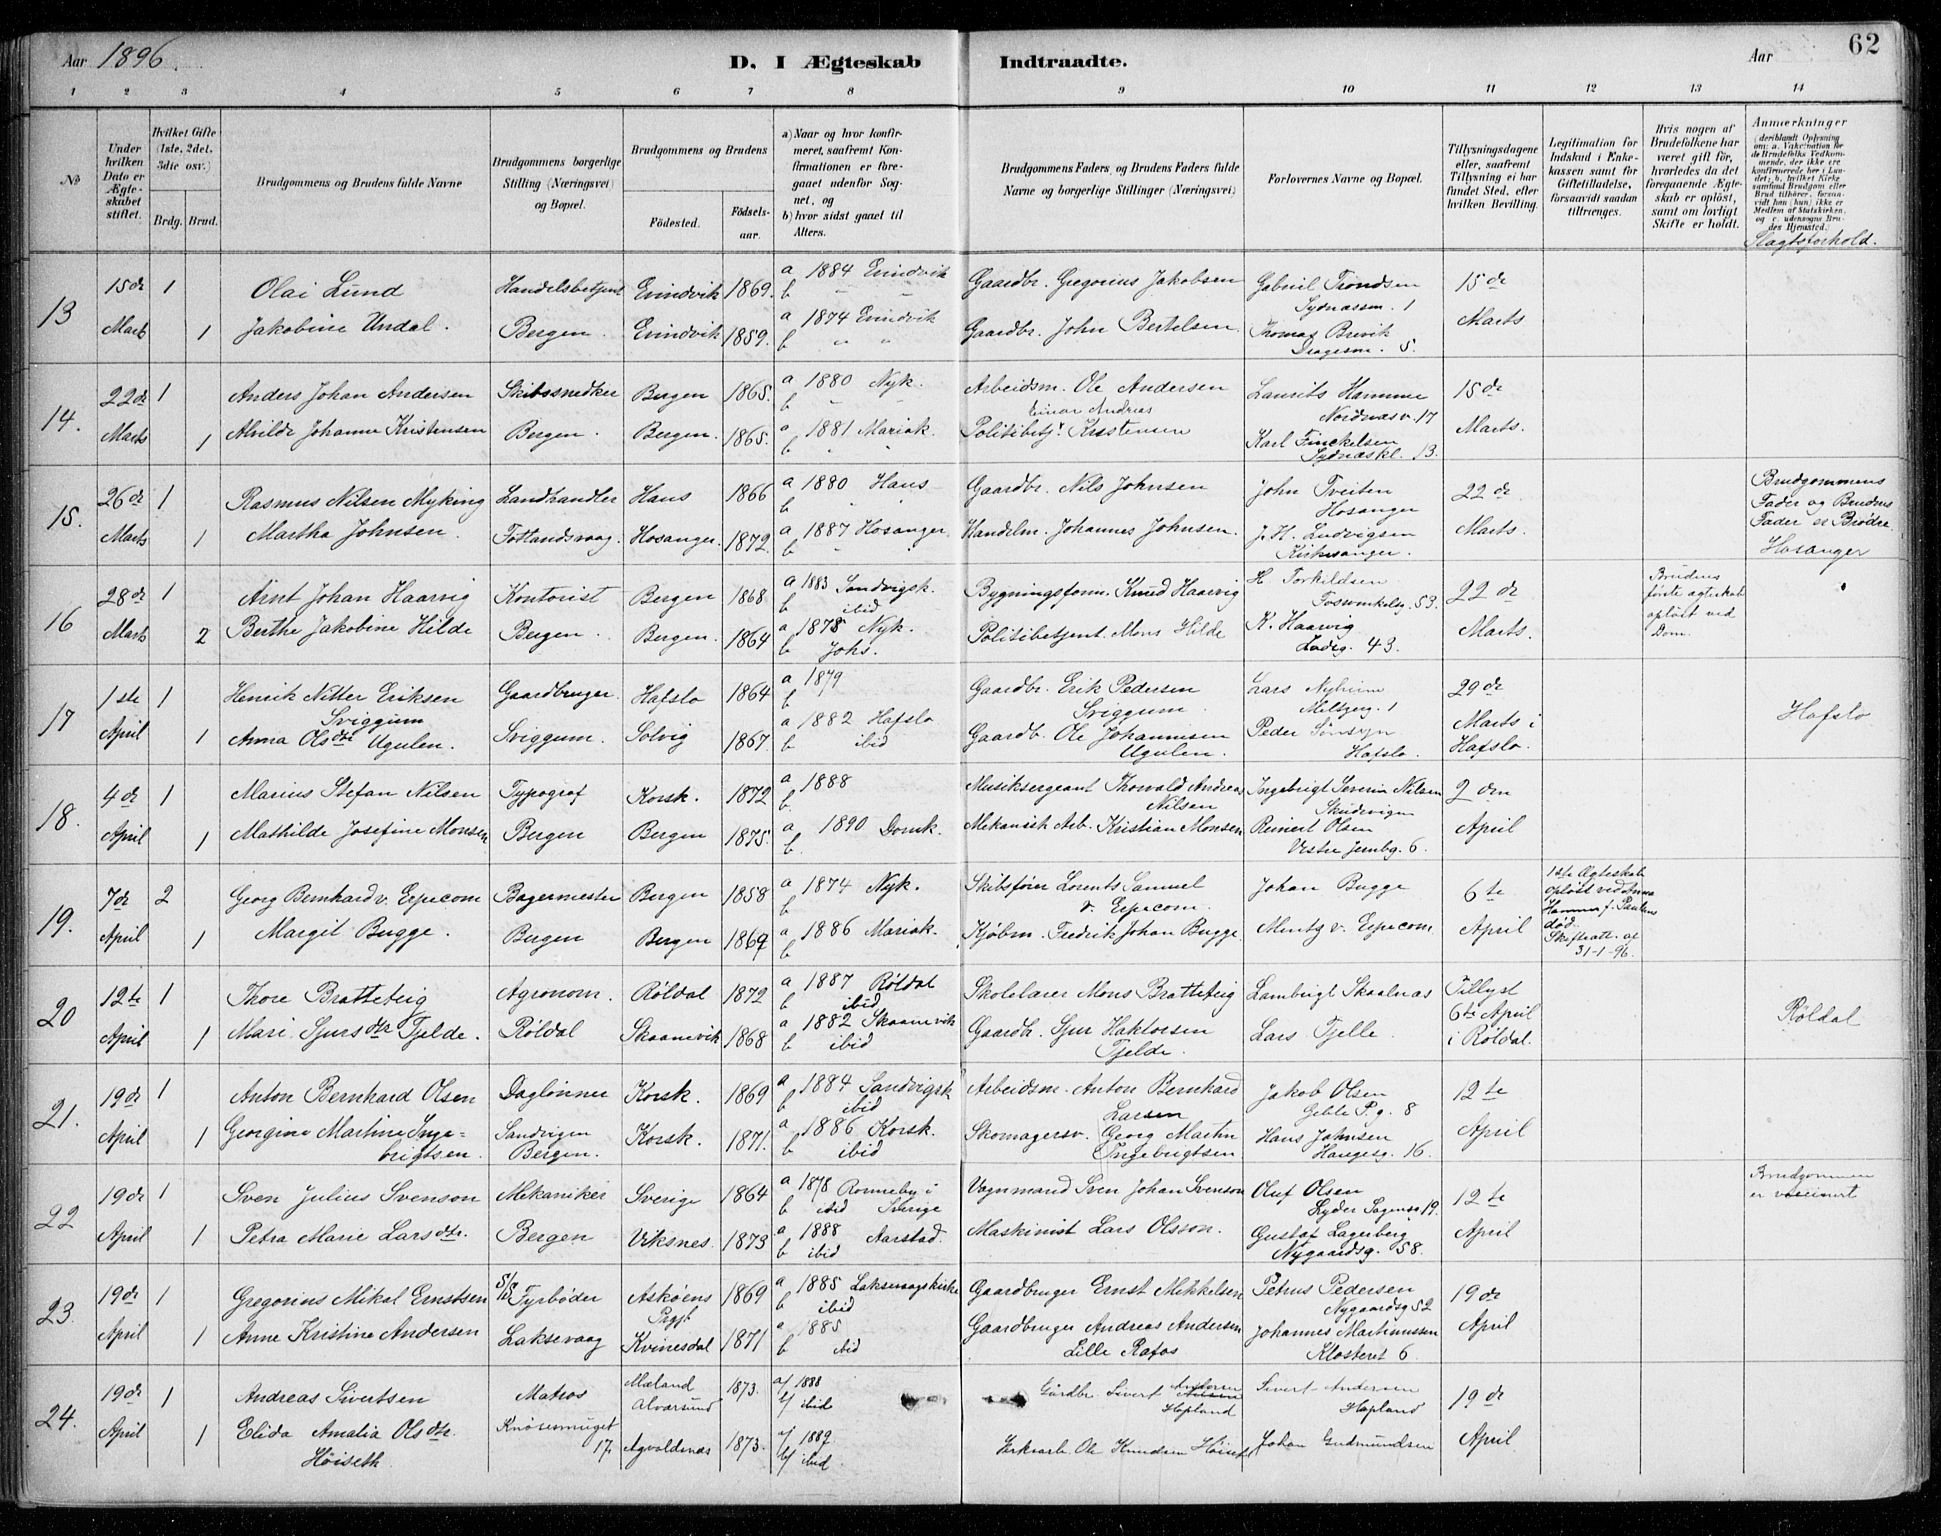 Aar 1896.
D. I Ægteskab Indtraadte.
Aar 62
1 2 3 4 5 6 7 8 9 10 11 12 13 14
No
Under hvilken Dato er Ægteskabet stiftet.
Hvilket Gifte (1ste, 2det, 3die osv.)
Brdg. Brud.
Brudgommens og Brudens fulde Navne
Brudgommens borgerlige Stilling (Næringsvei) og Bopæl.
Brudgommens og Brudens
Födested. Födselsaar.
a) Naar og hvor konfirmeret, saafremt Konfirmationen er foregaaet udenfor Sognet, og
b) hvor sidst gaaet til Alters.
Brudgommens Faders og Brudens Faders fulde Navne og borgerlige Stillinger (Næringsvei)
Forlovernes Navne og Bopæl.
Tillysningsdagene eller, saafremt Tillysning ei har fundet Sted, efter hvilken Bevilling.
Legitimation for Indskud i Enkekassen samt for Giftetilladelse, forsaavidt saadan tiltrænges.
Hvis nogen af Brudefolkene har været gift før, hvorledes da det foregaaende Ægteskab er opløst, samt om lovligt Skifte er holdt.
Anmerkninger
Slagtsforhold.
13 15de Marts 1 Olai Lund Handelsbetjent Evindvik 1869. a 1884 Evindvik b " " Gaardbr. Gregorius Jakobsen Gabriel Trondsen Sydnæssm. 1 15de Marts
1 Jakobine Undal. Bergen. Evindvik 1859. a 1874 Evindvik b " " Gaardbr. John Bertelsen. Thomas Brevik Dragesm. 5.
14. 22de Marts. 1 Anders Johan Andersen Skibssnedker Bergen 1865. a 1880 Nyk. b Arbeidsm. Ole Andersen Laurits Hammer Nordnæsv. 17 15de Marts.
1 Alvilde Johanne Kristensen Bergen. Bergen. 1865. a 1881 Mariak. b Politibetjt. Einar Andreas Kristensen Karl Finckelsen Sydnæskl. 13.
15. 26de Marts. 1 Rasmus Nilsen Myking Landhandler Haus 1866 a 1880 Haus b Gaardbr. Nils Johnsen John Tveiten Hosanger 22de Marts. Brudgommens Fader og Brudens Fader er Brødre
1 Martha Johnsen. Fotlandsvaag. Hosanger. 1872. a 1887 Hosanger b Handelm. Johannes Johnsen. J. H. Ludvigsen Kirkesanger. Hosanger
16 28de Marts 1 Arnt Johan Haarvig Kontorist Bergen 1868. a 1883 Sandvigsk. b ibid Bygningsform. Knud Haarvig H. Torkildsen 53. 22de Marts. Brudens første ægteskab opløst ved Dom.
2 Berthe Jakobine Hilde Bergen. Bergen. 1864 a 1878 Nyk. b Johs. Politibetjent. Mons Hilde K. Haarvig Ladeg. 43
17 1ste April 1 Henrik Nitter Eriksen Sviggum Gaardbruger. Hafslo 1864 a 1879 b Gaardbr. Erik Pedersen Sviggum. Lars Nyheim 1 29de Marts i Hafslo. Hafslo
1 Anna Olsdtr Ugulen. Sviggum. Solvig 1867. a 1882 Hafslo b ibid Gaardb. Ole Johannesen Ugulen. Peder Hafslo.
18. 4de April 1 Marius Stefan Nilsen Typograf Korsk. 1872 a 1888 b Musiksergeant Thorvald Andreas Nilsen Ingebrigt Severin Nilsen Skudevigen 2den April
1 Mathilde Josefine Monsen Bergen Bergen 1875. a 1890 Domk. b. Mekanisk Arb. Kristian Monsen Reinert Olsen Vestre Jernbg. 6.
19. 7de April 2 Georg Bernhard v. Erpecom Bagermester Bergen 1858 a 1874 Nyk. b Skibsfører Lorents Samuel v. Erpecom. Johan Bugge 6te April 1ste Ægteskab opløst ved Anna Hammer f. Paulsens død. Skifteatt. af 31-1-96.
1 Margit Bugge. Bergen Bergen 1869 a 1886 Mariak. b Kjøbm. Fredrik Johan Bugge Mentz v. Erpecom
20 12te April 1 Thore Bratteteig Agronom. Røldal 1872 a 1887 Røldal b ibid Skolelærer Mons Bratteteig Lambrigt Skaalnæs Tillyst 6te April i Røldal. Røldal
1 Mari Sjursdtr Tjelde. Røldal Skaanevik 1868 a 1882 Skaanevik b ibid Gaardb. Sjur Haktorsen Tjelde. Lars Tjelle.
21. 19de April 1 Anton Bernhard Olsen Daglønner Korsk. 1869 a 1884 Sandvigsk b ibid Arbeidsm. Anton Bernhard Larsen Jakob Olsen Geble P. g. 8 12te April
1 Georgine Martine Ingebrigtsen. Sandvigen Bergen. Korsk. 1871. a 1886 Korsk. b ibid Skomagersv. Georg Martin Ingebrigtsen Hans Johnsen Haugesg. 16.
22 19de April 1 Sven Julius Svenson Mekaniker Sverige 1864 a 1878 Ronneby i Sverige b ibid Vognmand Sven Johan Svenson Oluf Olsen Lyder Sagensg. 19. 12te April Brudgommen er vaccinert
1 Petra Marie Larsdtr. Bergen Viksnes. 1873 a 1888 Aarstad. b ibid Maskinist Lars Olsson. Gustaf Lagerberg Nygaardsg. 58.
23. 19de April 1 Gregorius Mikal Ernstsen Fyrbøder Askøens Prgjt 1869 a 1885 Laksevaags kirke b ibid Gaardbruger Ernst Mikkelsen Petrus Pedersen Nygaardsg 52 19de April
1 Anne Kristine Andersen Laksevaag Kvinesdal 1871 a 1885 b ibid Gaardbruger Andreas Andersen Lille Rafos Johannes Martinussen Klosteret 6
24. 19de April 1 Andreas Sivertsen Matros Mæland Alversund 1873. a/ 1888 b/ ibid Gårdbr Sivert Andersen Hopland Sivert Andersen Hopland 19de April
1 Elida Amalia Olsdtr. Høiseth Knøsesmuget 17. Agvaldsnæs 1873. a/ 1889 b/ ibid Ole Knudsen Høiseth Johan Gudmundsen